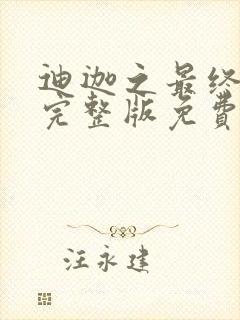 迪迦之最终
完整版免费
汪永建